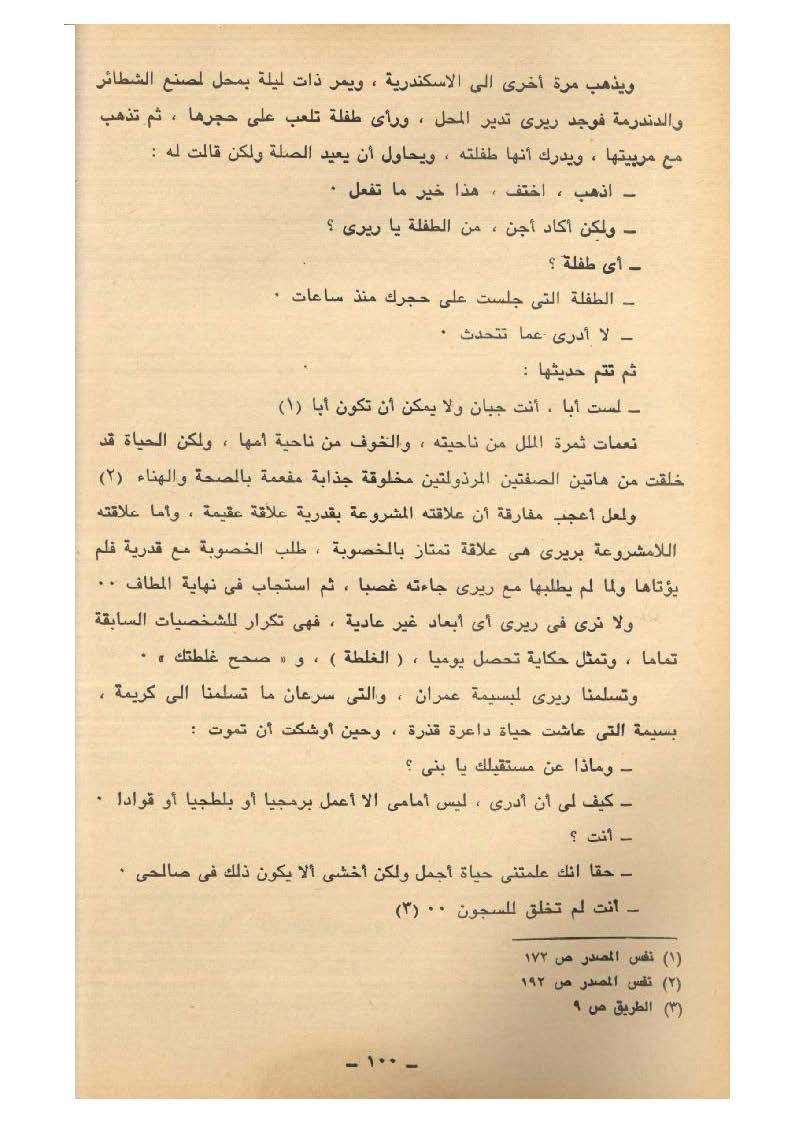 ويذهب مرة أخرى الى الاسكندرية ، ويمر ذات ليلة بمحل لصنع الشطائر
والدندرمة فوجد ريرى تدير المحل ، ورأى طفلة تلعب على حجرها ، ثم تذهب
مع مربيتها ، ويدرك أنها طفلته ، ويحاول أن يعيد الصلة ولكن قالت له :
ـ اذهب ، اختف ، هذا خير ما تفعل ٠
ـ ولكن أكاد أجن ، من الطفلة يا ريرى ؟
ـ أى طفلة ؟
ـ الطفلة التى جلست على حجرك منذ ساعات ٠
ـ لا أدرى عما تتحدث ٠
ثم تتم حديثها :
ـ لست أبا ، أنت جبان ولا يمكن أن تكون أبا (١)
نعمات ثمرة الملل من ناحيته ، والخوف من ناحية أمها ، ولكن الحياة قد
خلقت من هاتين الصفتين المرذولتين مخلوقة جذابة مفعمة بالصحة والهناء (٢)
ولعل أعجب مفارقة أن علاقته المشروعة بقدرية علاقة عقيمة ، وأما علاقته
اللامشروعة بريرى هى علاقة تمتاز بالخصوبة ، طلب الخصوبة مع قدرية فلم
يؤتاها ولما لم يطلبها مع ريرى جاءته غصبا ، ثم استجاب فى نهاية المطاف ٠٠
ولا نرى فى ريرى أى أبعاد غير عادية ، فهى تكرار للشخصيات السابقة
تماما ، وتمثل حكاية تحصل يوميا ، ( الغلطة ) ، و « صحح غلطتك » ٠
وتسلمنا ريرى لبسيمة عمران ، والتى سرعان ما تسلمنا الى كريمة ،
بسيمة التى عاشت حياة داعرة قذرة ، وحين أوشكت أن تموت :
ـ وماذا عن مستقبلك يا بنى ؟
ـ كيف لى أن أدرى ، ليس أمامى الا أعمل برمجيا أو بلطجيا أو قوادا ٠
ـ أنت ؟
ـ حقا انك علمتنى حياة أجمل ولكن أخشى ألا يكون ذلك فى صالحى ٠
ـ أنت لم تخلق للسجون ٠٠ (٣)
(١) نفس المصدر ص ١٧٢
(٢) نفس المصدر ص ١٩٢
(٣) الطريق ص ٩
ـ ١٠٠ ـ